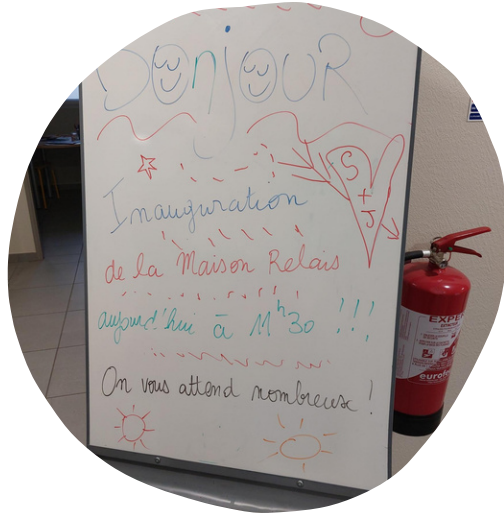 BONJOUR
S
+J
Inauguration
de la Maison Relais
aujourd'hui à 11h30 !!!
On vous attend nombreux !
EXPE
eurofe